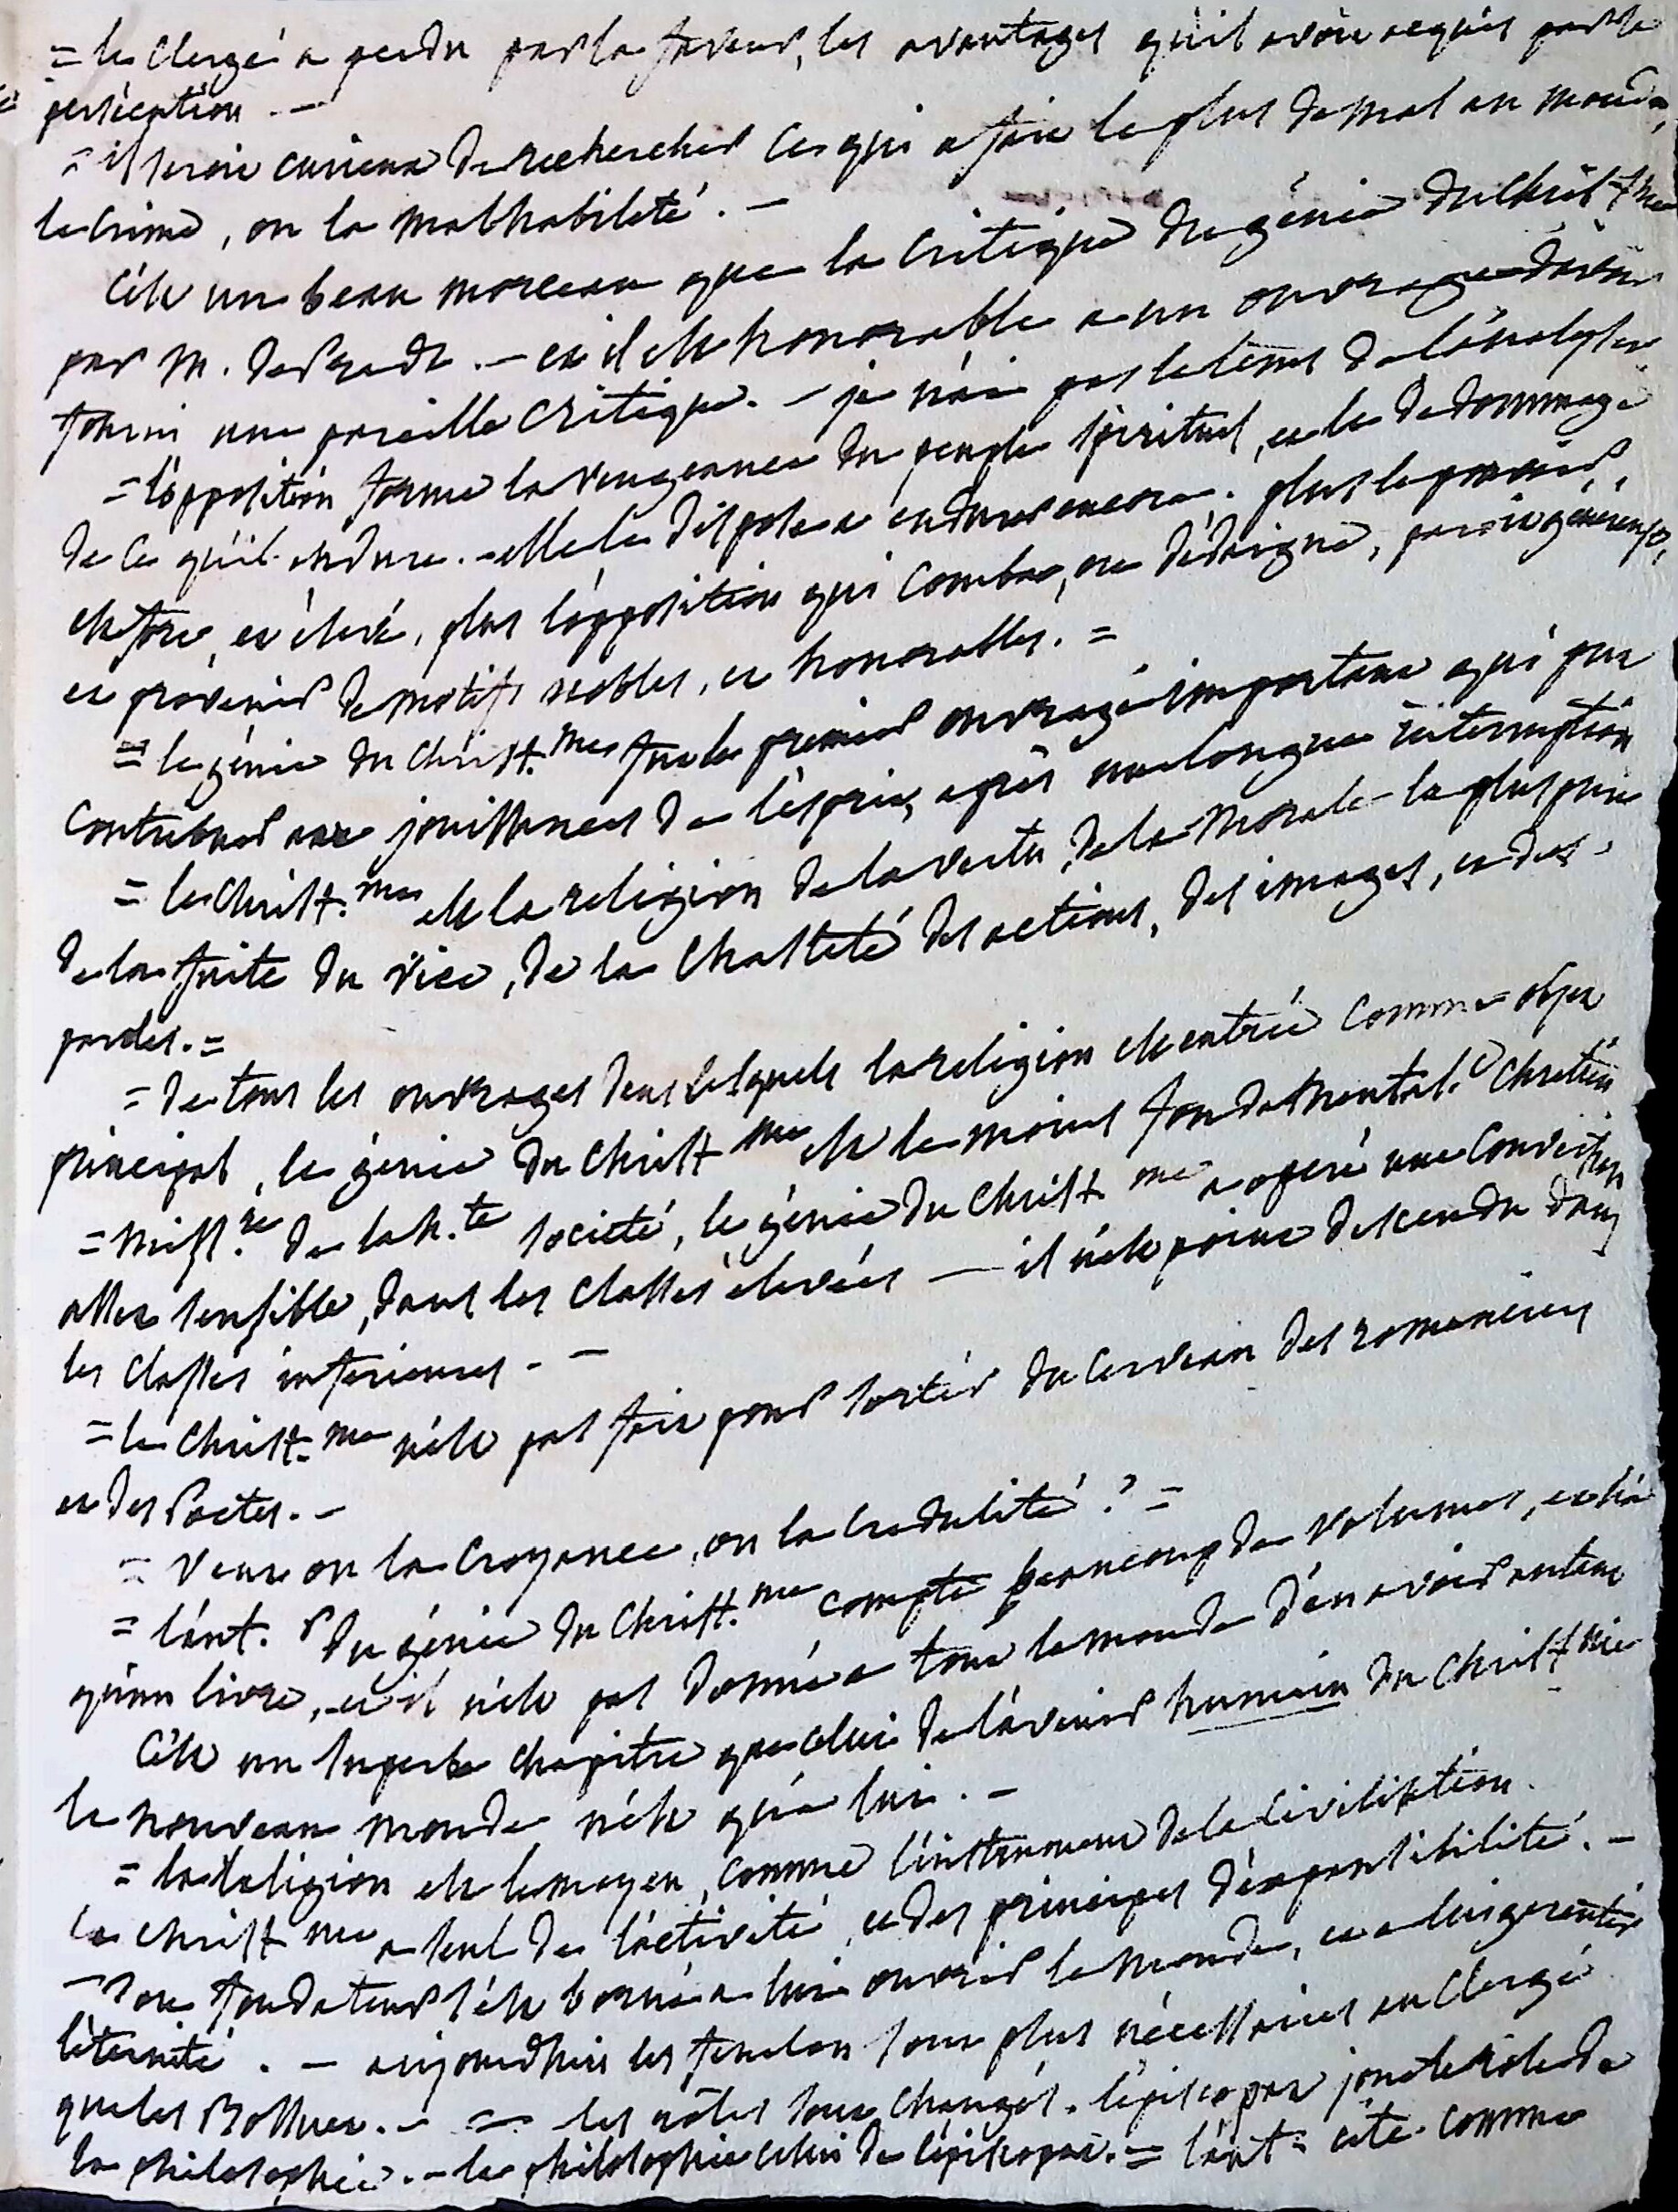 = le Clergé a perdu par la faveur, les avantages qu'il avoit acquis par la
persécution. —
= il seroit curieux de rechercher ce qui a fait le plus de mal au monde,
le crime, ou la malhabileté. —
C'est un beau morceau que la critique du génie du Christ.me
par M. de Pradt. — et il est honorable a un ouvrage d'avoir
fourni une pareille critique. — je n'ai pas le tems de l'analyser
= l'opposition forme la vengeance du peuple spirituel, et le dedommage
de ce qu'il endure. — elle le dispose a endurer encore. plus le pouvoir,
est fort, et élevé, plus l'opposition qui combat, ou dédaigne, paroit généreuse,
et provenir de motifs nobles, et honorables. =
= le génie du Christ.me fut le premier ouvrage important qui put
contribuer aux jouissances de l'esprit, après une longue interruption
= le Christ.me est la religion de la vertu, de la morale la plus pure
de la fuite du vice, de la chasteté des actions, des images, et des
paroles. =
= de tous les ouvrages dans lesquels la religion est entrée comme objet
principal, le génie du Christ.me est le moins fondamental.t Chrétien
= miss.re de la h.te société, le génie du Christ.me a opéré une conviction
assez sensible, dans les classes élevées — il n'est point descendu dans
les classes inferieures. —
= le Christ.me n'est pas fait pour sortir du cerveau des romanciers
et des Poetes. —
= veut on la croyance, ou la credulité ? =
= l'aut.r du génie du Christ.me compte beaucoup de volumes, et n'a
qu'un livre, et il n'est pas donné a tout le monde d'en avoir autant
C'est un superbe chapitre que celui de l'avenir humain du Christ.me
le nouveau monde n'est qu'a lui. —
= la Religion est le moyen, comme l'instrument de la civilisation.
le Christ.me a seul de l'activité, et des principes d'expansibilité. —
— son fondateur s'est borné a lui ouvrir le monde, et a lui garantir
l'éternité. — aujourdhui les fenelon sont plus nécessaires au Clergé
que les Bossuet. — = les rôles sont changés. l'épiscopat joue le role de
la philosophie. — la philosophie celui de l'épiscopat. = l'aut.r cite comme